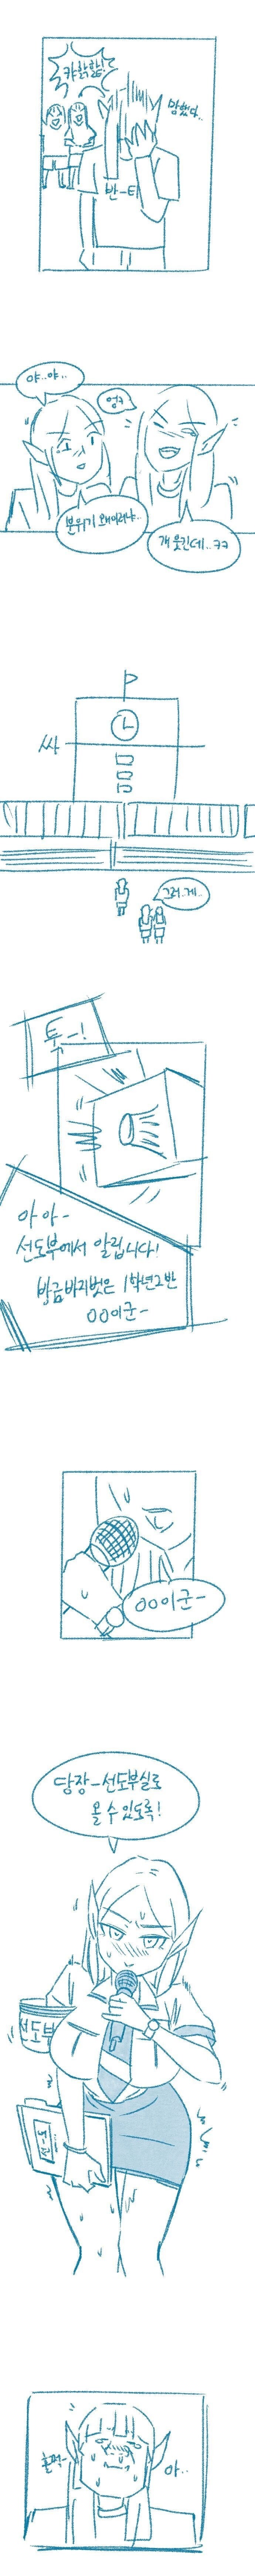 캬핡핡!
망했다..
반-티
야..야..
엉?
분위기 왜이러냐..
개웃긴데..ㅋㅋ
싸
그러..게..
투-!
아아-
선도부에서 알립니다!
방금바지벗은 1학년2반
OO이군-
OO이군-
당장-선도부실로
올 수 있도록!
선도부
훌쩍-
아..